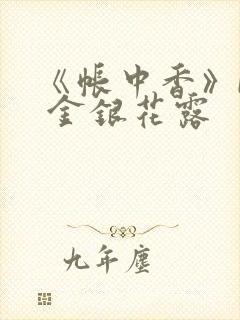 《帐中香》
金银花露
九年尘